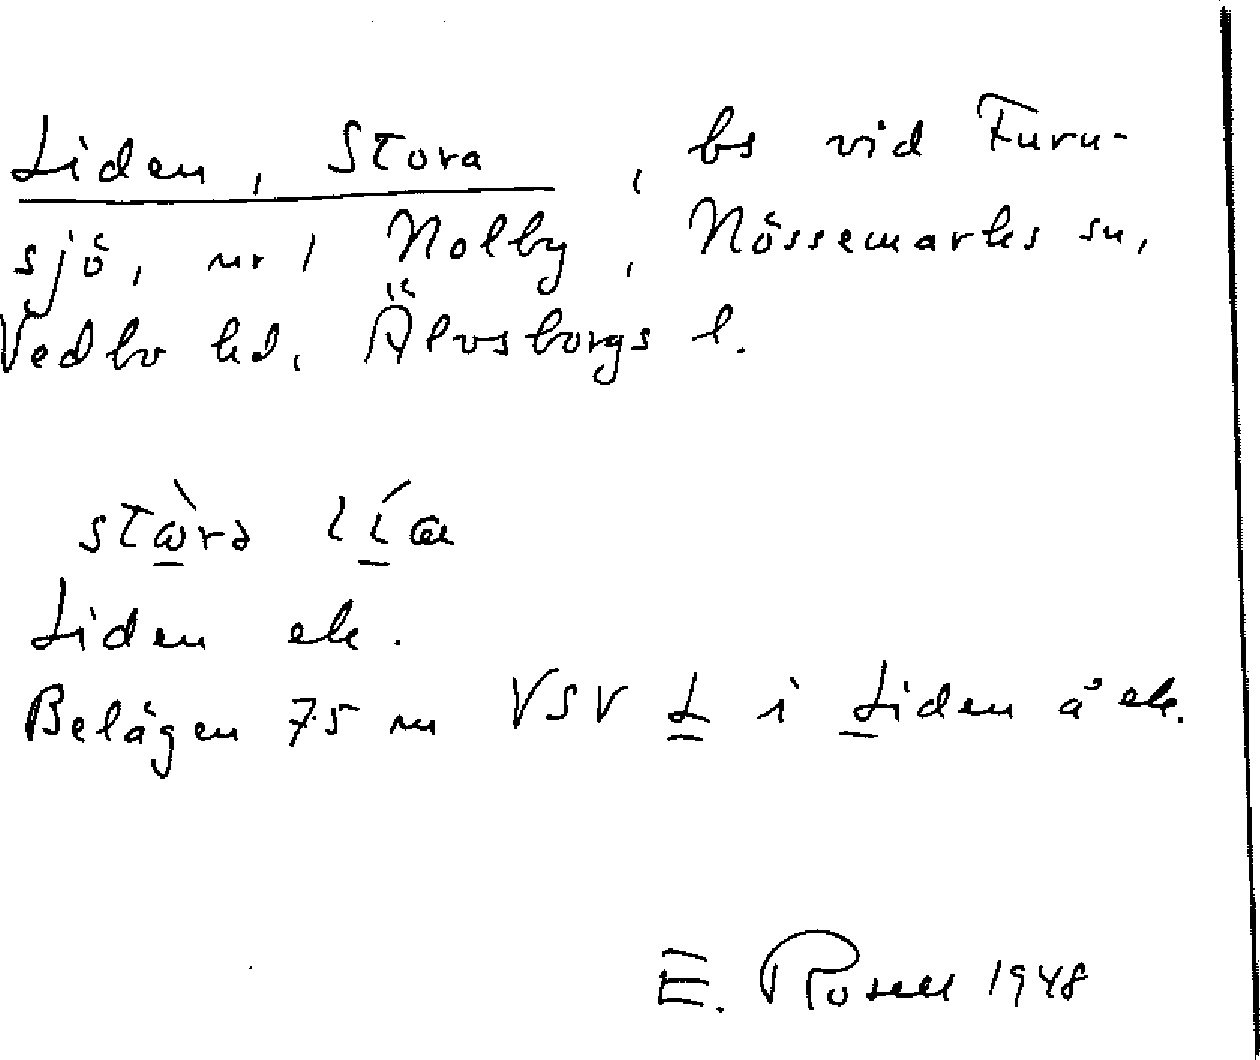 Liden, Stora, bs vid Furu-
sjö, nr 1 Nolby, Nössemarks sn,
Vedbo hd, Älvsborgs l.
Liden ek.
Belägen 75 m VSV L i Liden å ek.
E. Rosell 1948